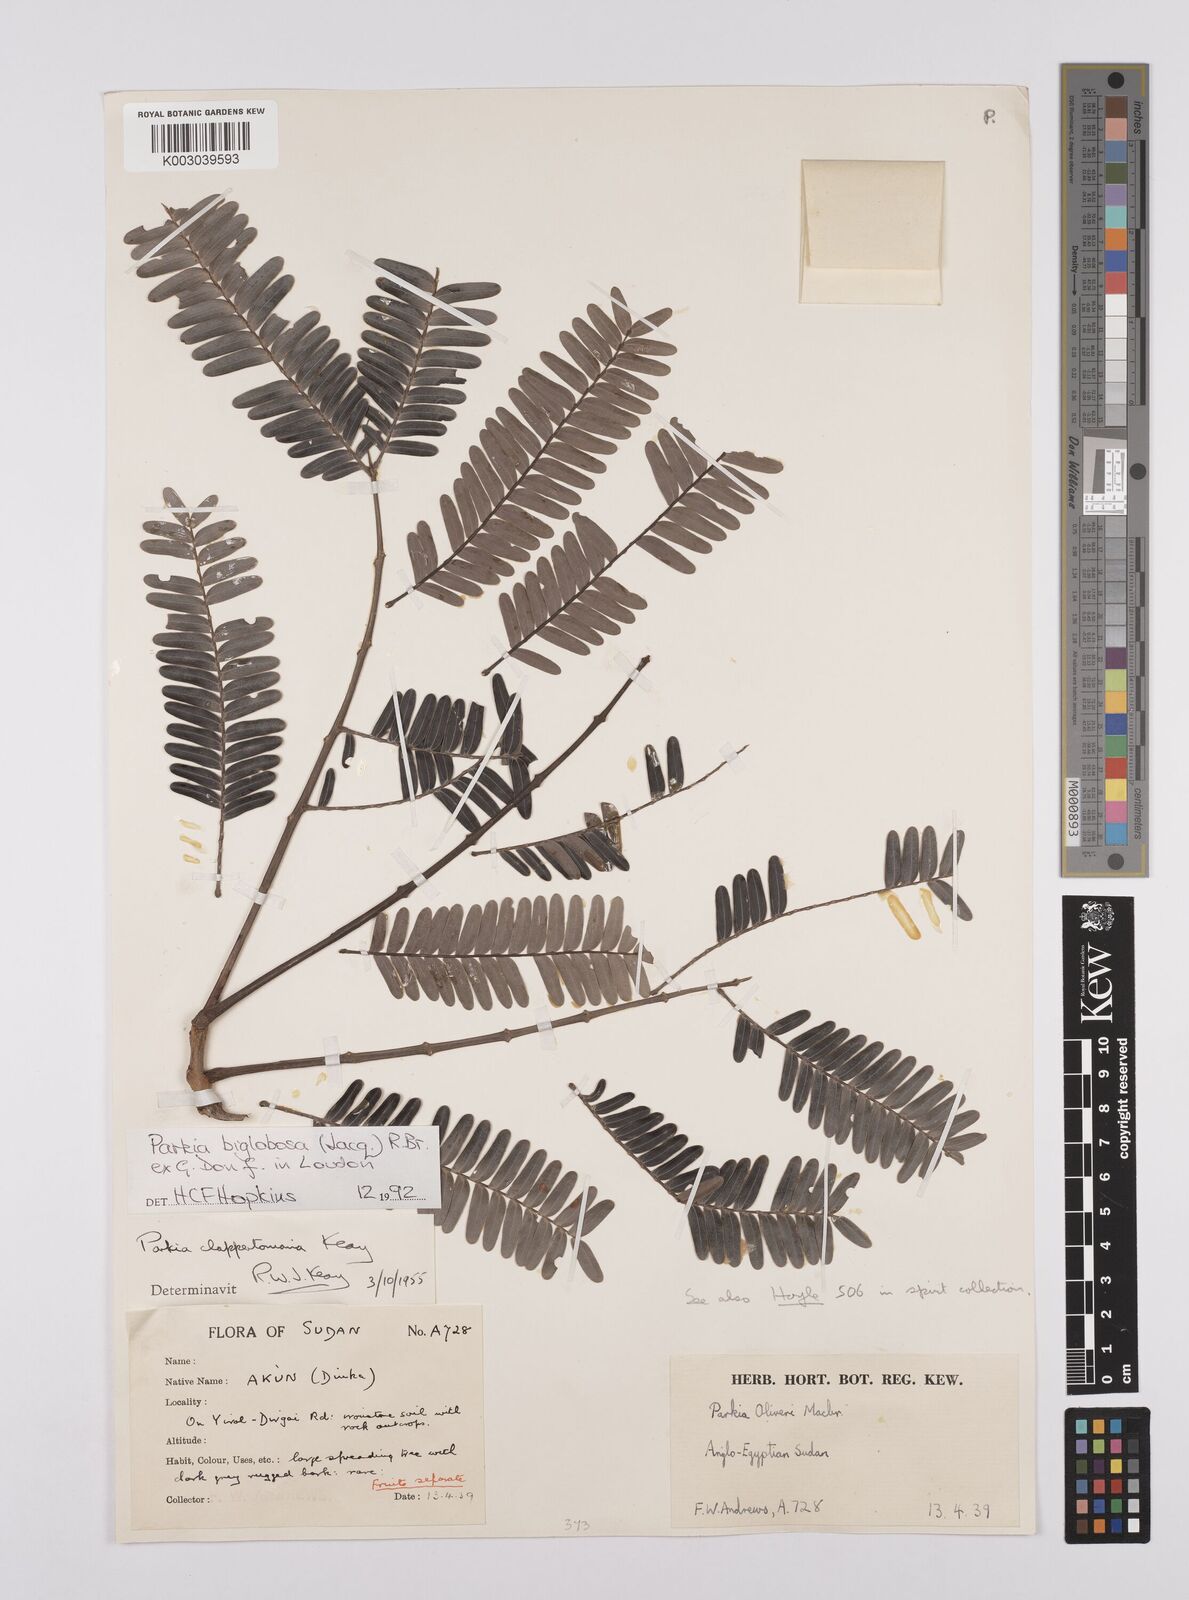 ROYAL BOTANIC GARDENS KEW
K003039593
P.
Parkia biglobosa (Jacq.) R.Br.
ex G. Don f. in Loudon
DET HCF Hopkins 12 1992
Parkia clappertoniana Keay
Determinavit R.W.J. Keay 3/10/1955
FLORA OF SUDAN No. A728
Name:
Native Name: AKÙN (Dinka)
Locality:
On Yirol - Rd: ironstone soil with
rock outcrops.
Altitude:
Habit, Colour, Uses, etc.: large spreading tree with
dark grey rugged bark: rare:
Fruits separate
Collector: Date: 13.4.39
See also Hoyle 506 in spirit collection.
HERB. HORT. BOT. REG. KEW.
Parkia Oliveri Macbr.
Anglo-Egyptian Sudan
F.W. Andrews, A.728 13.4.39
373
inches
Density
Don Williams
centimeters
M000893
Royal Botanic Gardens
Kew
copyright reserved
0 1 2 3 4 5 6 7 8 9 10
cm